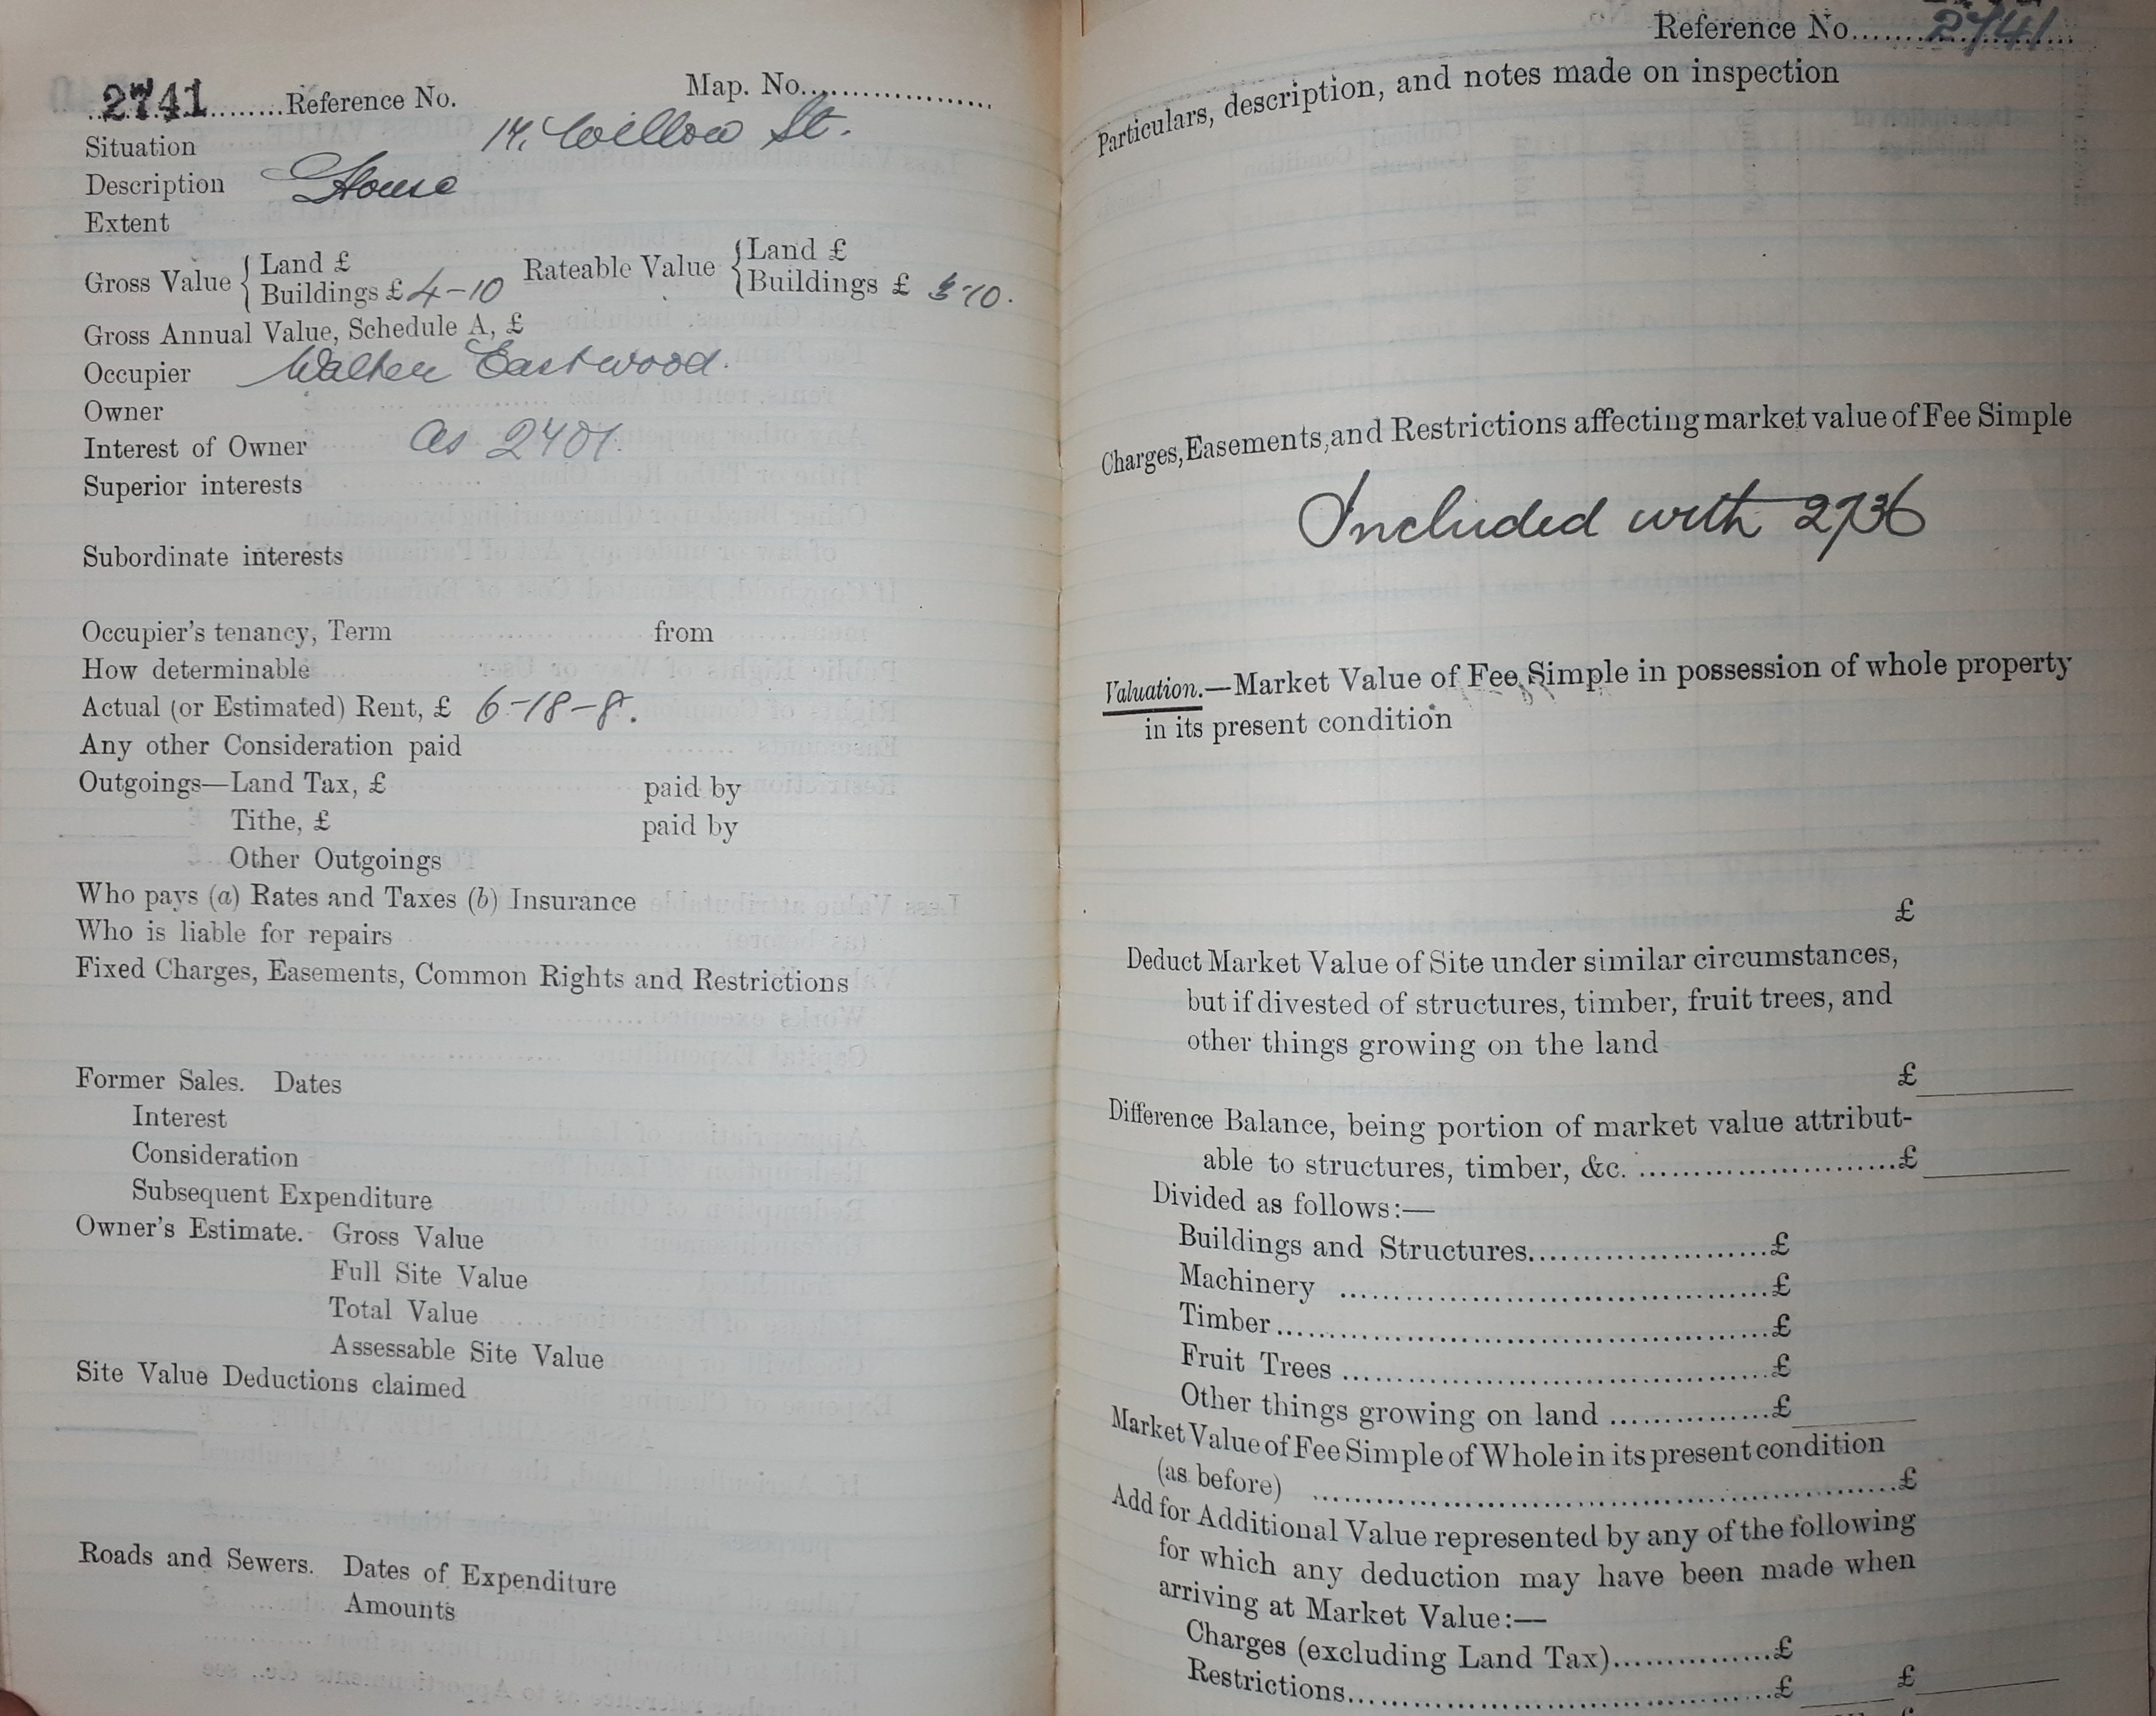 2741 ...........Reference No. Map. No.....................
Situation 14, Willow St.
Description House
Extent
Gross Value { Land £
Buildings £ 4-10 Rateable Value { Land £
Buildings £ 10.
Gross Annual Value, Schedule A, £
Occupier Walter Eastwood.
Owner
Interest of Owner as 2401.
Superior interests
Subordinate interests
Occupier's tenancy, Term from
How determinable
Actual (or Estimated) Rent, £ 6-18-8.
Any other Consideration paid
Outgoings—Land Tax, £ paid by
Tithe, £ paid by
Other Outgoings
Who pays (a) Rates and Taxes (b) Insurance
Who is liable for repairs
Fixed Charges, Easements, Common Rights and Restrictions
Former Sales. Dates
Interest
Consideration
Subsequent Expenditure
Owner's Estimate. Gross Value
Full Site Value
Total Value
Assessable Site Value
Site Value Deductions claimed
Roads and Sewers. Dates of Expenditure
Amounts
Reference No. 2741
Particulars, description, and notes made on inspection
Charges, Easements, and Restrictions affecting market value of Fee Simple
Included with 2736
Valuation.—Market Value of Fee Simple in possession of whole property
in its present condition
£
Deduct Market Value of Site under similar circumstances,
but if divested of structures, timber, fruit trees, and
other things growing on the land
£
Difference Balance, being portion of market value attribut-
able to structures, timber, &c. ..............................£
Divided as follows:—
Buildings and Structures.........................£
Machinery ..............................................£
Timber....................................................£
Fruit Trees .............................................£
Other things growing on land ................£
Market Value of Fee Simple of Whole in its present condition
(as before) ..............................................................£
Add for Additional Value represented by any of the following
for which any deduction may have been made when
arriving at Market Value:—
Charges (excluding Land Tax)................£
Restrictions..............................................£ £